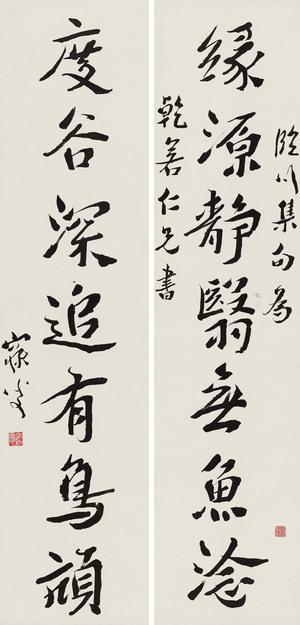 緣源靜翳無魚淰
臨川集句為
乾若仁兄書
度谷深追有鳥頏
寐叟